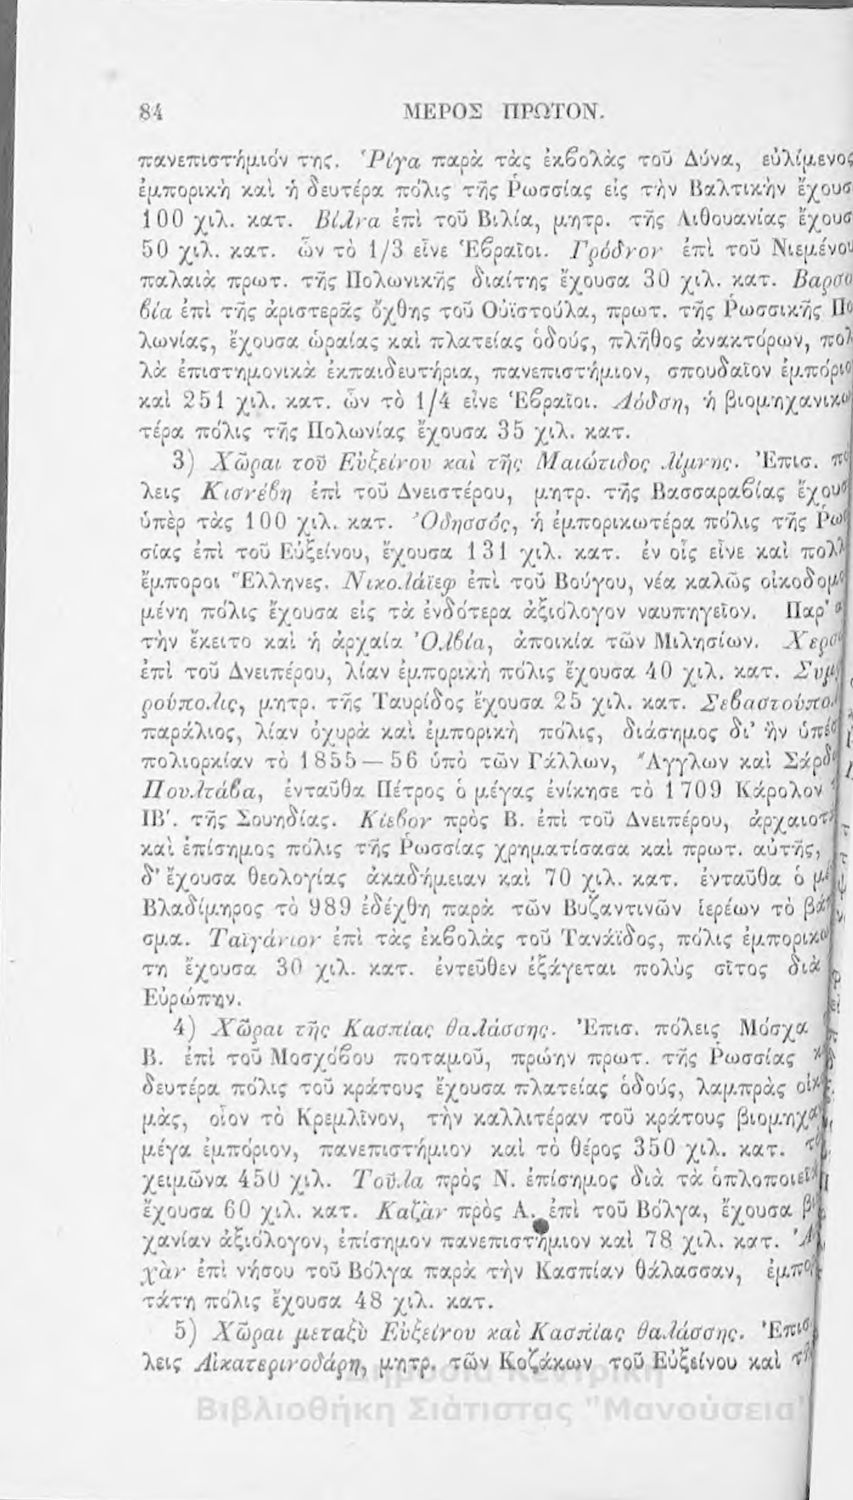 84 ΜΕΡΟΣ ΠΡΩΤΟΝ.
πανεπιστήμιόν της. Ῥίγα παρὰ τὰς ἐκβολὰς τοῦ Δύνα, εὐλίμενος
ἐμπορικὴ καὶ ἡ δευτέρα πόλις τῆς Ῥωσσίας εἰς τὴν Βαλτικὴν ἔχουσ
100 χιλ. κατ. Βίλνα ἐπὶ τοῦ Βιλία, μητρ. τῆς Λιθουανίας ἔχουσ
50 χιλ. κατ. ὧν τὸ 1/3 εἶνε Ἑβραῖοι. Γρόδνον ἐπὶ τοῦ Νιεμένου
παλαιὰ πρωτ. τῆς Πολωνικῆς διαίτης ἔχουσα 30 χιλ. κατ. Βαρσο
βία ἐπὶ τῆς ἀριστερᾶς ὄχθης τοῦ Οὐϊστούλα, πρωτ. τῆς Ῥωσσικῆς Πο
λωνίας, ἔχουσα ὡραίας καὶ πλατείας ὁδούς, πλῆθος ἀνακτόρων, πολ
λὰ ἐπιστημονικὰ ἐκπαιδευτήρια, πανεπιστήμιον, σπουδαῖον ἐμπόριο
καὶ 251 χιλ. κατ. ὧν τὸ 1/4 εἶνε Ἑβραῖοι. Λόδση, ἡ βιομηχανικω
τέρα πόλις τῆς Πολωνίας ἔχουσα 35 χιλ. κατ.
3) Χῶραι τοῦ Εὐξείνου καὶ τῆς Μαιώτιδος λίμνης. Ἐπισ. πό
λεις Κισνέβη ἐπὶ τοῦ Δνειστέρου, μητρ. τῆς Βασσαραβίας ἔχουσ
ὑπὲρ τὰς 100 χιλ. κατ. Ὀδησσός, ἡ ἐμπορικωτέρα πόλις τῆς Ῥωσ
σίας ἐπὶ τοῦ Εὐξείνου, ἔχουσα 131 χιλ. κατ. ἐν οἷς εἶνε καὶ πολλ
ἔμποροι Ἕλληνες. Νικολάϊεφ ἐπὶ τοῦ Βούγου, νέα καλῶς οἰκοδομ
μένη πόλις ἔχουσα εἰς τὰ ἐνδότερα ἀξιόλογον ναυπηγεῖον. Παρ'
τὴν ἔκειτο καὶ ἡ ἀρχαία Ὀλβία, ἀποικία τῶν Μιλησίων. Χερσ
ἐπὶ τοῦ Δνειπέρου, λίαν ἐμπορικὴ πόλις ἔχουσα 40 χιλ. κατ. Συμ
ρούπολις, μητρ. τῆς Ταυρίδος ἔχουσα 25 χιλ. κατ. Σεβαστούπολ
παράλιος, λίαν ὀχυρὰ καὶ ἐμπορικὴ πόλις, διάσημος δι' ἣν ὑπέσ
πολιορκίαν τὸ 1855—56 ὑπὸ τῶν Γάλλων, Ἄγγλων καὶ Σάρδ
Πουλτάβα, ἐνταῦθα Πέτρος ὁ μέγας ἐνίκησε τὸ 1709 Κάρολον
ΙΒ'. τῆς Σουηδίας. Κίεβον πρὸς Β. ἐπὶ τοῦ Δνειπέρου, ἀρχαιοτ
καὶ ἐπίσημος πόλις τῆς Ῥωσσίας χρηματίσασα καὶ πρωτ. αὐτῆς,
δ' ἔχουσα θεολογίας ἀκαδήμειαν καὶ 70 χιλ. κατ. ἐνταῦθα ὁ μ
Βλαδίμηρος τὸ 989 ἐδέχθη παρὰ τῶν Βυζαντινῶν ἱερέων τὸ βά
σμα. Ταϊγάνιον ἐπὶ τὰς ἐκβολὰς τοῦ Τανάϊδος, πόλις ἐμπορικω
τη ἔχουσα 30 χιλ. κατ. ἐντεῦθεν ἐξάγεται πολὺς σῖτος διὰ
Εὐρώπην.
4) Χῶραι τῆς Κασπίας θαλάσσης. Ἐπισ. πόλεις Μόσχα
Β. ἐπὶ τοῦ Μοσχόβου ποταμοῦ, πρώην πρωτ. τῆς Ῥωσσίας
δευτέρα πόλις τοῦ κράτους ἔχουσα πλατείας ὁδούς, λαμπρὰς οἰκ
μάς, οἷον τὸ Κρεμλῖνον, τὴν καλλιτέραν τοῦ κράτους βιομηχα
μέγα ἐμπόριον, πανεπιστήμιον καὶ τὸ θέρος 350 χιλ. κατ.
χειμῶνα 450 χιλ. Τοῦλα πρὸς Ν. ἐπίσημος διὰ τὰ ὁπλοποιεῖ
ἔχουσα 60 χιλ. κατ. Καζὰν πρὸς Α. ἐπὶ τοῦ Βόλγα, ἔχουσα βι
χανίαν ἀξιόλογον, ἐπίσημον πανεπιστήμιον καὶ 78 χιλ. κατ.
χὰν ἐπὶ νήσου τοῦ Βόλγα παρὰ τὴν Κασπίαν θάλασσαν, ἐμπο
τάτη πόλις ἔχουσα 48 χιλ. κατ.
5) Χῶραι μεταξὺ Εὐξείνου καὶ Κασπίας θαλάσσης. Ἐπισ
λεις Αἰκατερινοδάρη, μητρ. τῶν Κοζάκων τοῦ Εὐξείνου καὶ
Δημόσια Κεντρική
Βιβλιοθήκη Σιάτιστας "Μανούσεια"